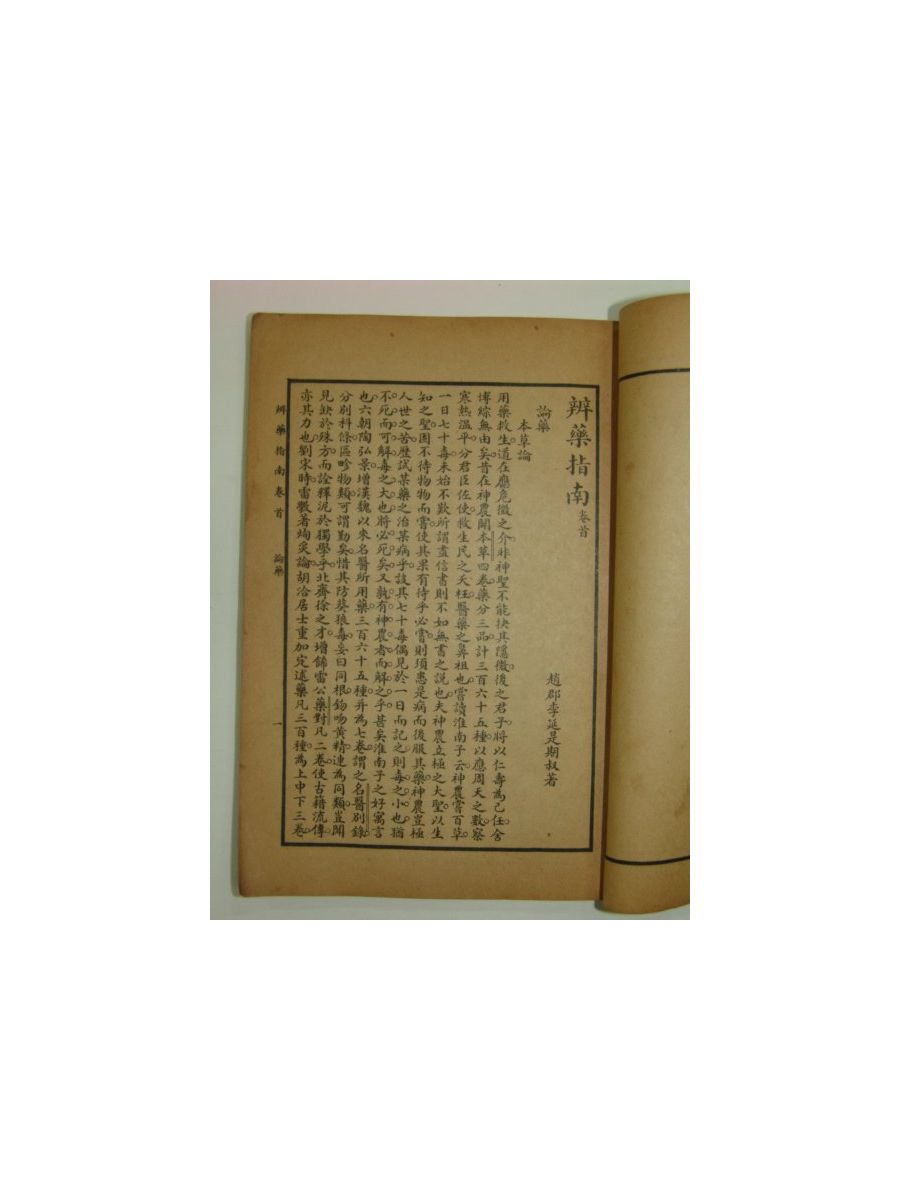 辨藥指南卷首
趙郡李延是期叔著
論藥
本草論
用藥救生道在應危微之介非神聖不能抉其隱微後之君子將以仁壽為己任舍
博綜無由矣昔在神農闢本草四卷藥分三品計三百六十五種以應周天之數察
寒熱溫平分君臣佐使救生民之夭枉醫藥之鼻祖也嘗讀淮南子云神農嘗百草
一日七十毒未始不歎所謂盡信書則不如無書之說也夫神農立極之大聖以生
知之聖固不待物物而嘗使其果有待乎必嘗則須患是病而後服其藥神農豈極
人世之苦歷試某藥之治某病乎設其七十毒偶見於一日而記之則毒之小也猶
不死而可解毒之大也將必死矣又孰有神農者而解之乎甚矣淮南子之好寓言
也六朝陶弘景增漢魏以來名醫所用藥三百六十五種并為七卷謂之名醫別錄
分別科條區畛物類可謂勤矣惜其防葵狼毒妄曰同根鉤吻黃精連為同類豈聞
見缺於殊方而詮釋泥於獨學乎北齊徐之才增飾雷公藥對凡二卷使古籍流傳
亦其力也劉宋時雷斆著炮炙論胡洽居士重加定述藥凡三百種為上中下三卷
辨藥指南卷首 論藥 一